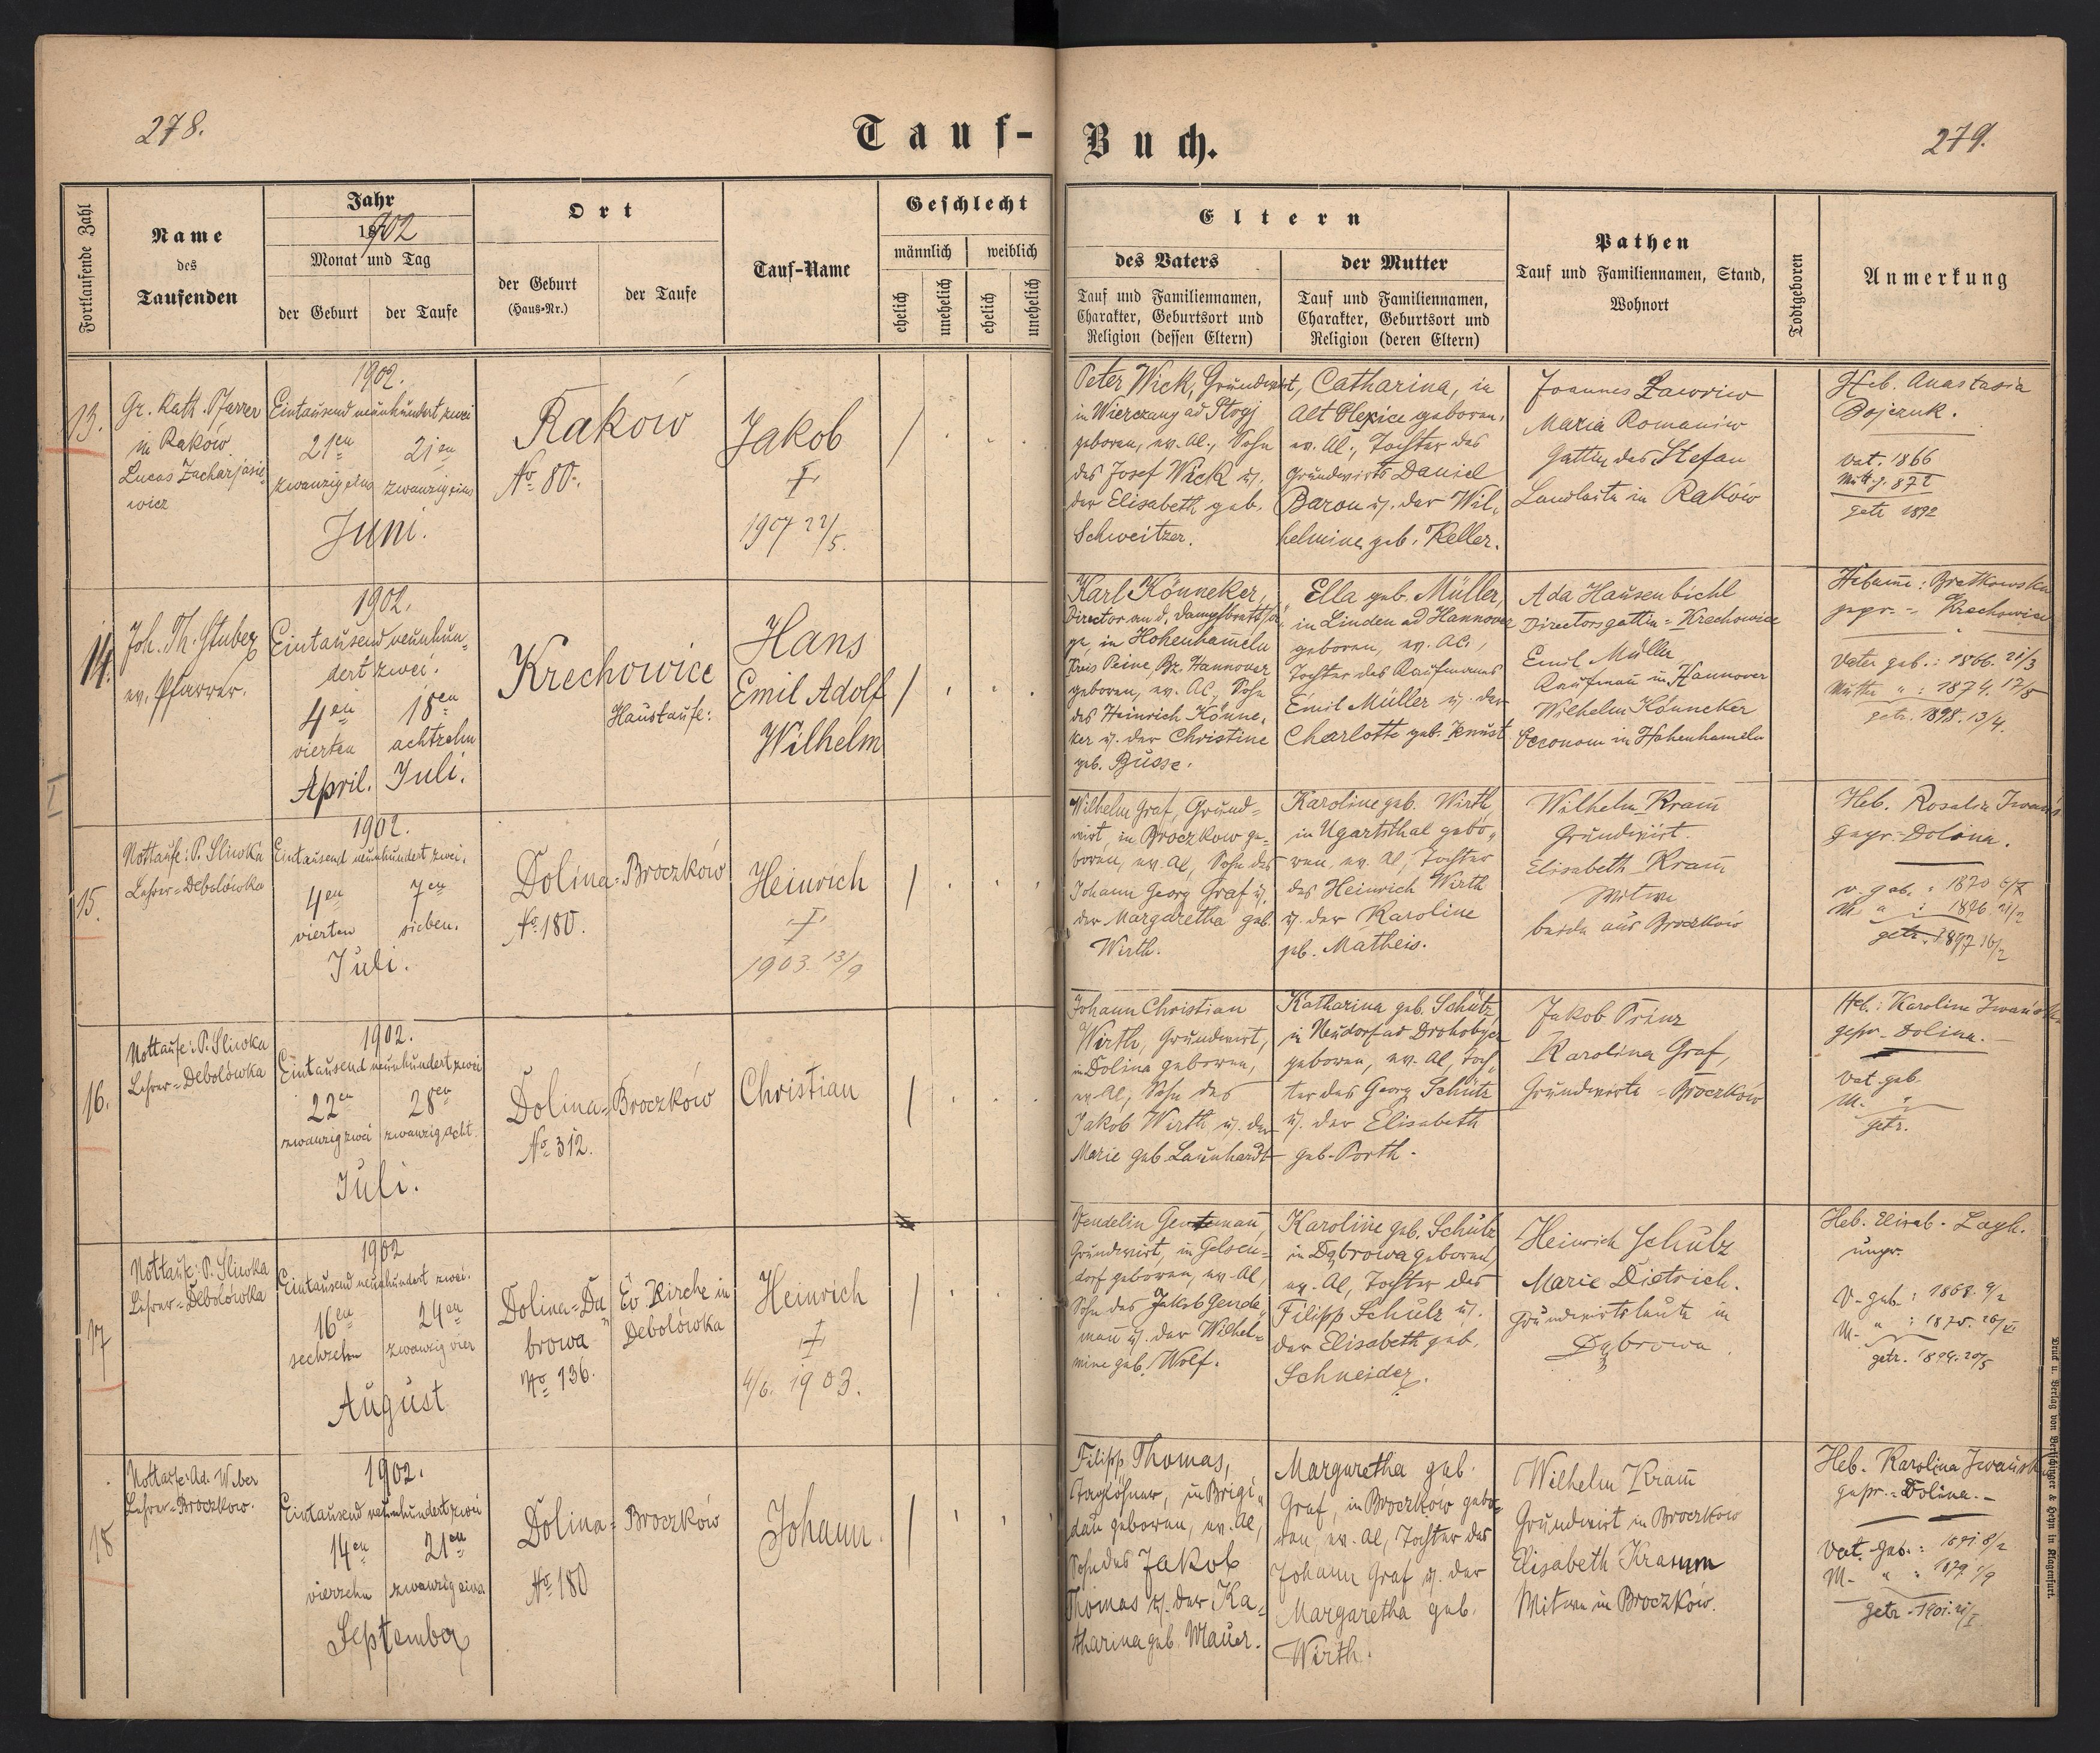 278.
Tauf-
Buch.
279.
Fortlaufende Zahl
Name
des
Taufenden
Jahr
18 902
Monat und Tag
der Geburt
der Taufe
Ort
der Geburt
(Haus-Nr.)
der Taufe
Tauf-Name
Geschlecht
männlich
weiblich
ehelich
unehelich
ehelich
unehelich
Eltern
des Vaters
Tauf und Familiennamen,
Charakter, Geburtsort und
Religion (dessen Eltern)
der Mutter
Tauf und Familiennamen,
Charakter, Geburtsort und
Religion (deren Eltern)
Pathen
Tauf und Familiennamen, Stand,
Wohnort
Todtgeboren
Anmerkung
13.
Gr. Kath. Pfarrer
in Raków.
Lucas Zacharjasie-
wicz
1902.
Eintausend neunhundert zwei
21en
zwanzig eins
21en
zwanzig eins
Juni.
Raków
No 80.
Jakob
1907 22/5.
Peter Wick, Grundwirt,
in Wierczany ad Stryj
geboren, ev. AC., Sohn
des Josef Wick u.
der Elisabeth geb.
Schweitzer.
Catharina, in
Alt Olexice geboren,
ev. AC., Tochter des
Grundwirts Daniel
Baron u. der Wil-
helmine geb. Keller.
Joannes Ławriw
Maria Romaniw
Gattin des Stefan
Landleute in Raków
Heb. Anastasia
Bojczuk.
Vat. 1866
Mutt. g. 872
getr 1892
14.
Joh. Th. Stuber
ev. Pfarrer.
1902.
Eintausend neunhun-
dert zwei.
4en
vierten
April.
18en
achtzehn
Juli.
Krechowice
Haustaufe:
Hans
Emil Adolf
Wilhelm
Karl Könneker,
Director an d. Dampfbrettsä-
ge, in Hohenhameln
Kreis Peine, Pr. Hannover
geboren, ev. AC, Sohn
des Heinrich Könne-
ker u. der Christine
geb. Busse.
Ella geb. Müller,
in Linden ad Hannover
geboren, ev. AC.,
Tochter des Kaufmanns
Emil Müller u. der
Charlotte geb. Knust
Ada Hausenbichl
Directorsgattin = Krechowice
Emil Müller
Kaufmann in Hannover
Wilhelm Könneker
Oeconom in Hohenhameln
Hebamme: Bratkowska
gepr. = Krechowice
Vater geb.: 1866. 21/3
Mutter " : 1874. 17/5
getr. 1898. 13/4.
15.
Nottaufe: P. Sliwka
Lehrer = Debolówka
1902.
Eintausend neunhundert zwei.
4en
vierten
7en
sieben.
Juli.
Dolina = Broczków
No 180.
Heinrich
1903. 13/9
Wilhelm Graf, Grund-
wirt, in Broczkow ge-
boren, ev. AC, Sohn des
Johann Georg Graf u.
der Margaretha geb.
Wirth.
Karoline geb. Wirth,
in Ugartsthal gebo-
ren, ev. AC, Tochter
des Heinrich Wirth
u. der Karoline
geb. Matheis.
Wilhelm Kram̅
Grundwirt.
Elisabeth Kram̅
Witwe
beide aus Broczków
Heb. Rosalia
gepr. Dolina.
v. geb. : 1870
M. " : 1876 21/2
getr. 1897 16/2
16.
Nottaufe: P. Sliwka
Lehrer = Debolówka
1902.
Eintausend neunhundert zwei
22en
zwanzig zwei
28en
zwanzig acht.
Juli.
Dolina = Broczków
No 312.
Christian
Johann Christian
Wirth, Grundwirt,
in Dolina geboren,
ev. AC, Sohn des
Jakob Wirth u. der
Marie geb. Launhardt
Katharina geb. Schütz
in Neudorf ad Drohobycz
geboren, ev. AC, Toch-
ter des Georg Schütz
u. der Elisabeth
geb. Porth.
Jakob Prinz
Karolina Graf,
Grundwirte = Broczków
Heb.: Karolina
gepr. Dolina.
Vat. geb.
M. "
getr.
17
Nottaufe: P. Sliwka
Lehrer = Debolówka
1902
Eintausend neunhundert zwei.
16en
sechzehn
24en
zwanzig vier
August
Dolina = Dą-
browa
No 136.
Ev. Kirche in
Debolówka
Heinrich
4/6. 1903.
Wendelin Gendemann,
Grundwirt, in Gelsen-
dorf geboren, ev. AC,
Sohn des Jakob Gende-
mann u. der Wilhel-
mine geb. Wolf.
Karoline geb. Schulz
in Dąbrowa geboren,
ev. AC, Tochter des
Filipp Schulz u.
der Elisabeth geb.
Schneider.
Heinrich Schulz
Marie Dietrich.
Grundwirtsleute in
Dąbrowa.
Heb. Elisab.
ungpr.
V. geb. : 1868. 9/2
M. " : 1875.
getr. 1894. 20/5
18
Nottaufe: Ad. Weber
Lehrer = Broczkow.
1902.
Eintausend neunhundert zwei
14en
vierzehn
21en
zwanzig eins
September
Dolina = Broczków
No 180
Johann.
Filipp Thomas,
Taglöhner, in Brigi-
dau geboren, ev. AC,
Sohn des Jakob
Thomas u. der Ka-
tharina geb. Mauer.
Margaretha geb.
Graf, in Broczków gebo-
ren, ev. AC, Tochter des
Johann Graf u. der
Margaretha geb.
Wirth.
Wilhelm Kram̅
Grundwirt in Broczków
Elisabeth Kramm
Witwe in Broczków.
Heb. Karolina
gepr. = Dolina. -
Vat. geb. : 1871. 8/2
M. " " 1879 1/9
getr. 1901.
Druck u. Verlag von Bertschinger & Heyn in Klagenfurt.